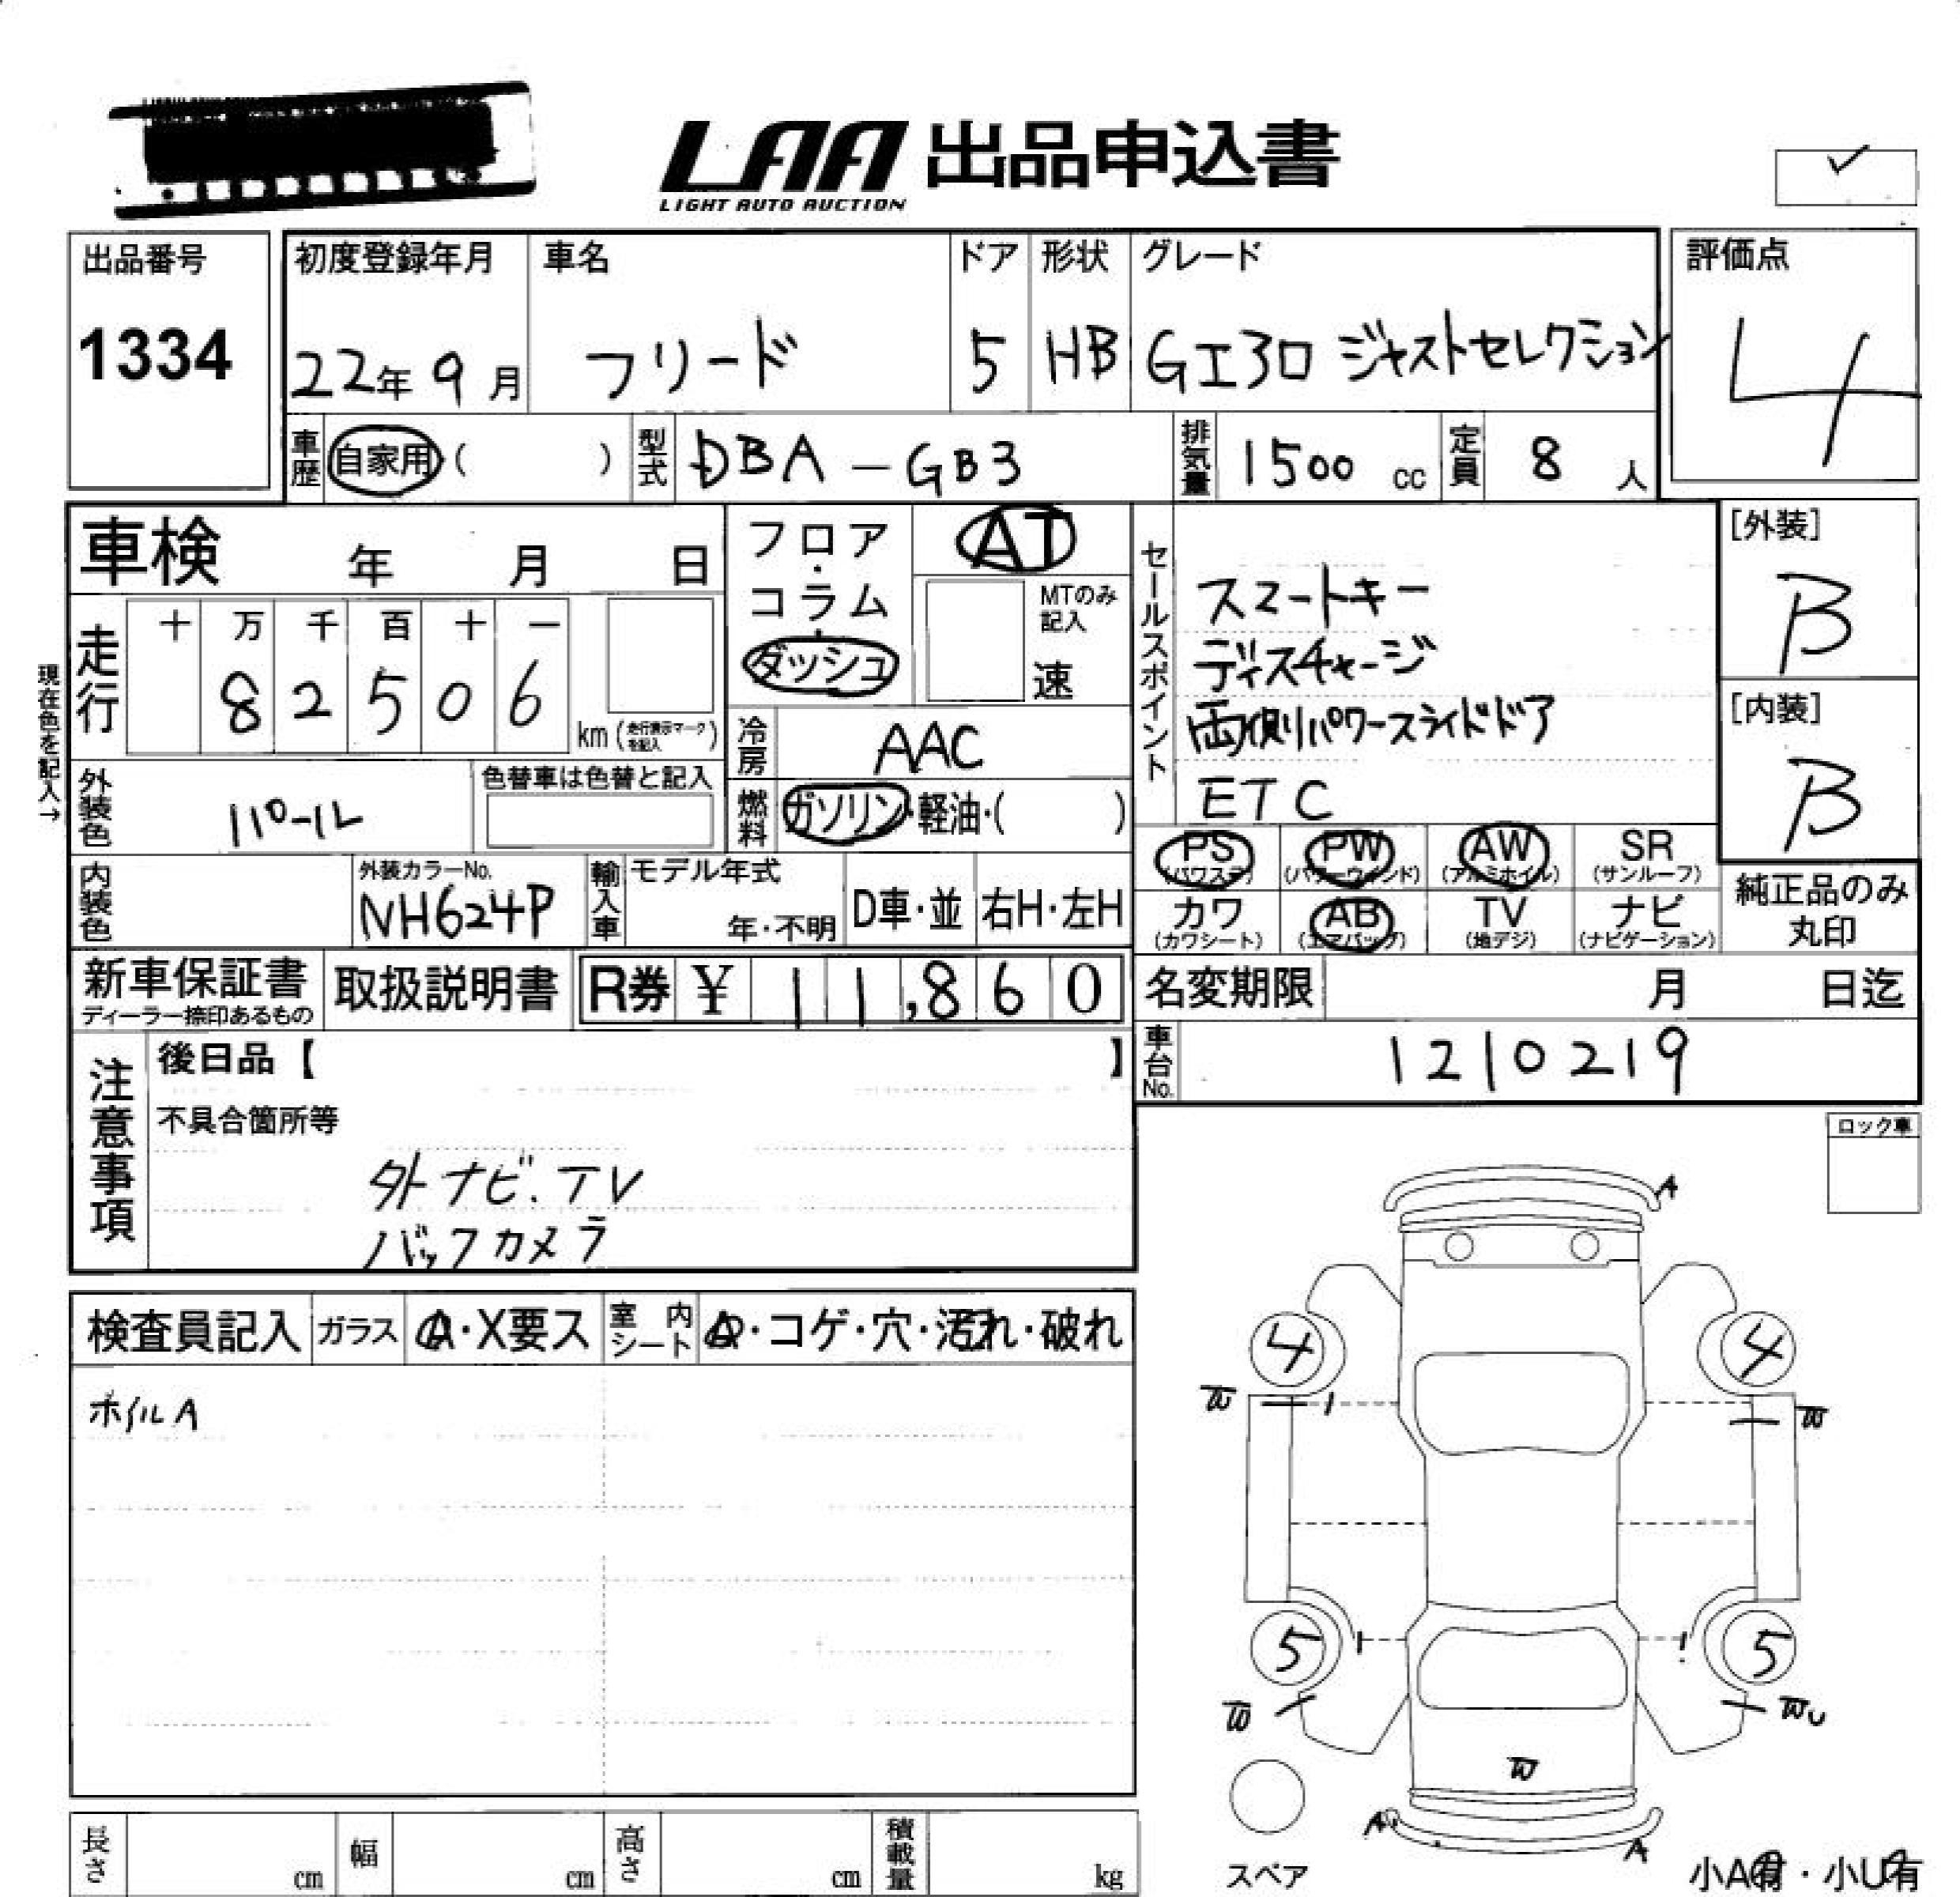 LAA 出品申込書
LIGHT AUTO AUCTION
出品番号
1334
初度登録年月
22年 9月
車名
フリード
ドア
5
形状
HB
グレード
Gエアロ ジャストセレクション
評価点
4
車歴 自家用 ( )
型式 DBA-GB3
排気量 1500 cc
定員 8 人
車検 年 月 日
フロア・コラム・ダッシュ
AT
MTのみ記入
速
走行
十 万 千 百 十 一
8 2 5 0 6
km (走行表示マークを記入)
現在色を記入→
冷房 AAC
外装色 パール
色替車は色替と記入
燃料 ガソリン・軽油・( )
セールスポイント
スマートキー
ディスチャージ
両側パワースライドドア
ETC
[外装]
B
[内装]
B
内装色
外装カラーNo.
NH624P
輸入車
モデル年式
年・不明
D車・並
右H・左H
PS (パワステ)
PW (パワーウィンド)
AW (アルミホイル)
SR (サンルーフ)
カワ (カワシート)
AB (エアバッグ)
TV (地デジ)
ナビ (ナビゲーション)
純正品のみ
丸印
新車保証書
ディーラー捺印あるもの
取扱説明書
R券 ¥ 11,860
名変期限 月 日迄
車台No. 1210219
注意事項
後日品【 】
不具合箇所等
外ナビ.TV
バックカメラ
ロック車
検査員記入
ガラス A・X要ス
室内シート A・コゲ・穴・汚れ・破れ
ホイルA
A
4
4
W
W
5
5
W
WU
W
A
A
スペア
小A有・小U有
長さ cm
幅 cm
高さ cm
積載量 kg